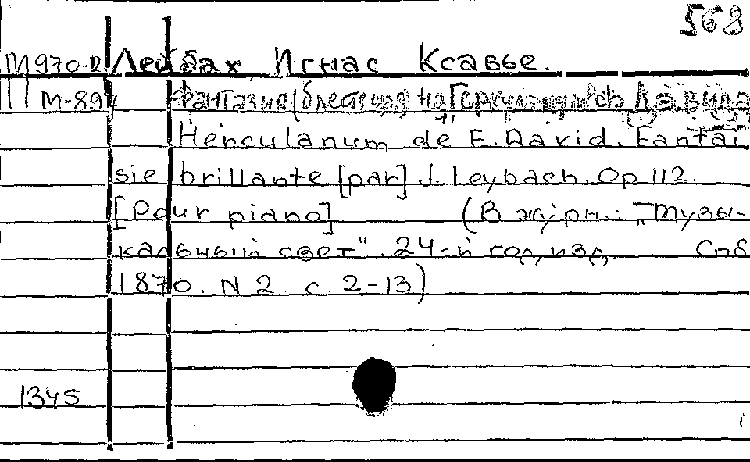 568
М970-R Лейбах Игнас Ксавье.
М-894 Фантазия (блестящая на Геркуланумъ Давида
Herculanum de E. David. Fantai
sie brillante [par] J. Leybach. Op 112.
[Pour piano] (В журн.: "Музы-
кальный свет". 24-й год, изд. Спб
1870. N 2. с 2-13)
1345